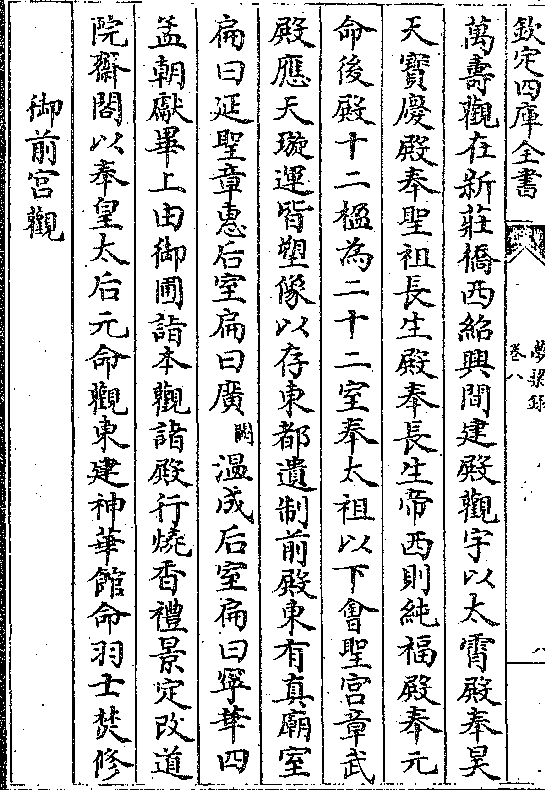 欽定四庫全書
夢粱錄
卷八
八
萬壽觀在新莊橋西紹興間建殿觀宇以太霄殿奉昊
天寶慶殿奉聖祖長生殿奉長生帝西則純福殿奉元
命後殿十二楹為二十二室奉太祖以下會聖宫章武
殿應天璇運皆塑像以存東都遺制前殿東有真廟室
扁曰延聖章惠后室扁曰廣闕温成后室扁曰寧華四
孟朝獻畢上由御圃詣本觀諸殿行燒香禮景定改道
院齋閣以奉皇太后元命觀東建神華館命羽士焚修
御前宫觀